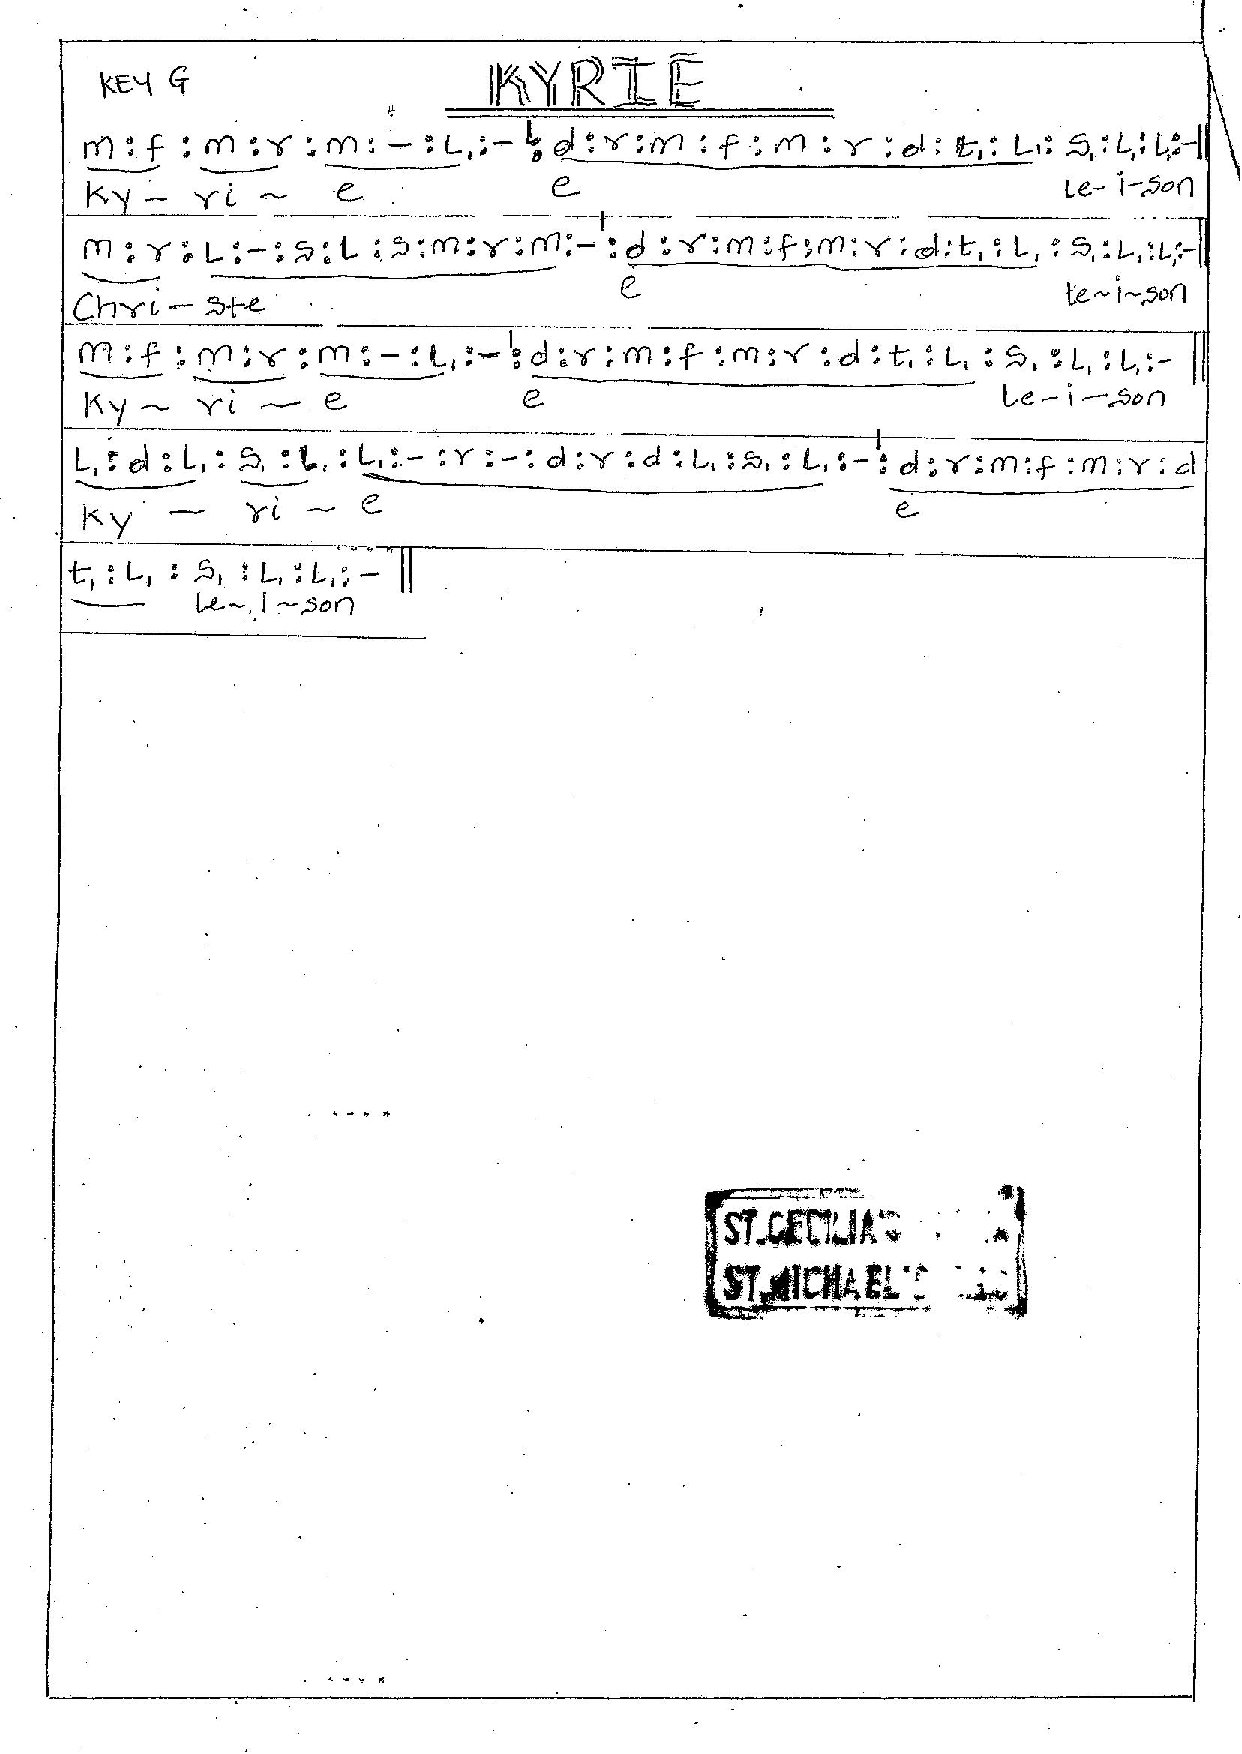 KEY G KYRIE
m : f : m : r : m : - : L₁ : - ˡ: d : r : m : f : m : r : d : t₁ : L₁ : S₁ : L₁ : L₁ : - ||
Ky - ri ~ e e le - i - son
m : r : L : - : s : L : s : m : r : m : - ˡ: d : r : m : f : m : r : d : t₁ : L₁ : S₁ : L₁ : L₁ : - ||
Chri - ste e le ~ i ~ son
m : f : m : r : m : - : L₁ : - ˡ: d : r : m : f : m : r : d : t₁ : L₁ : S₁ : L₁ : L₁ : - ||
Ky ~ ri ~ e e le - i - son
L₁ : d : L₁ : S₁ : L₁ : L₁ : - : r : - : d : r : d : L₁ : S₁ : L₁ : - ˡ: d : r : m : f : m : r : d
Ky - ri ~ e e
t₁ : L₁ : S₁ : L₁ : L₁ : - ||
le ~ i ~ son
ST. CECILIA'S
ST. MICHAEL'S